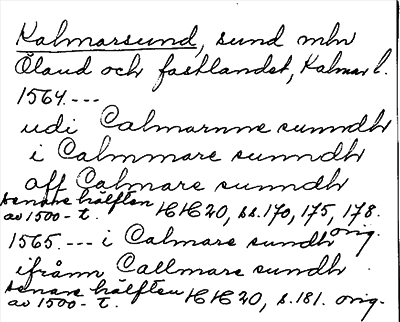 Kalmarsund, sund mln
Öland och fastlandet, Kalmar l.
1564.---
udi Calmarnne sunndh
i Calmmare sunndh
off Calmare sunndh
Senare hälften
av 1500-t. HH 20, ss. 170, 175, 178.
orig.
1565.--- i Calmare sundh
ifrånn Callmare sundh
Senare hälften
av 1500-t. HH 20, s. 181. orig.